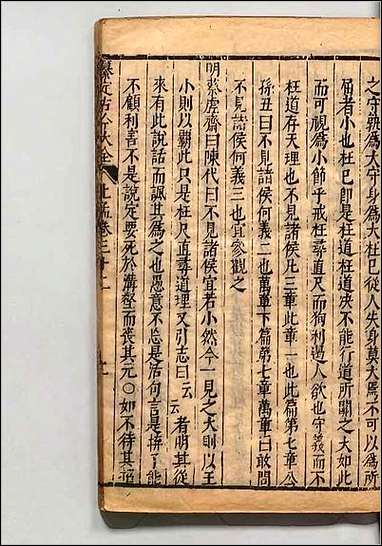 之守孰為大守身為大枉己辱人失身莫大焉不可以為所
屈者小也枉己即是枉道枉道決不能行道所關之大如此
而可視為小節乎戒枉尋直尺而狥利遏人欲也守義而不
枉道存天理也不見諸侯凡三章此章一也此篇第七章公
孫丑曰不見諸侯何義二也萬章下篇第七章萬章曰敢問
不見諸侯何義三也宜參觀之
明蔡虛齋曰陳代曰不見諸侯宜若小然今一見之大則以王
小則以霸此只是枉尺直尋道理又引志曰云云者明其從
來有此說話而諷其為之也愚意不怠是活句言是拚了能
不顧利害不是說定要死於溝壑而喪其元○如不待其招
上孟卷三十一